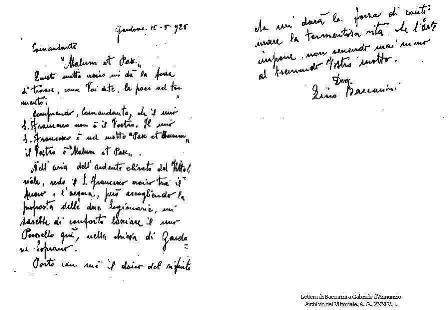 Gardone. 15-5-925
Comandante
"Malum et Pax"
Questo motto vostro mi dà la forza
di trovare, come Voi dite, la pace nel tor-
mento:
Comprendo, Comandante, che il mio
S. Francesco non è il Vostro. Il mio
S. Francesco è nel motto "Pax et Bonum"
il Vostro è "Malum et Pax".
Nell'aria dell'ardente oliveto del Vitto-
riale, vedo il S. Francesco vostro tra il
fuoco e l'acqua, però accogliendo la
proposta delle due legionarie, mi
sarebbe di conforto lasciare il mio
Poverello qui, nella chiesa di Gardo-
ne Soprano.
Porto con me il dono del
che mi darà la forza di conti-
nuare la tormentosa vita che l'Arte
impone, non venendo mai meno
al tremendo Vostro motto.
Dev.
Baccarini
Lettera di Baccarini a Gabriele d'Annunzio
Archivio del Vittoriale, A. G.